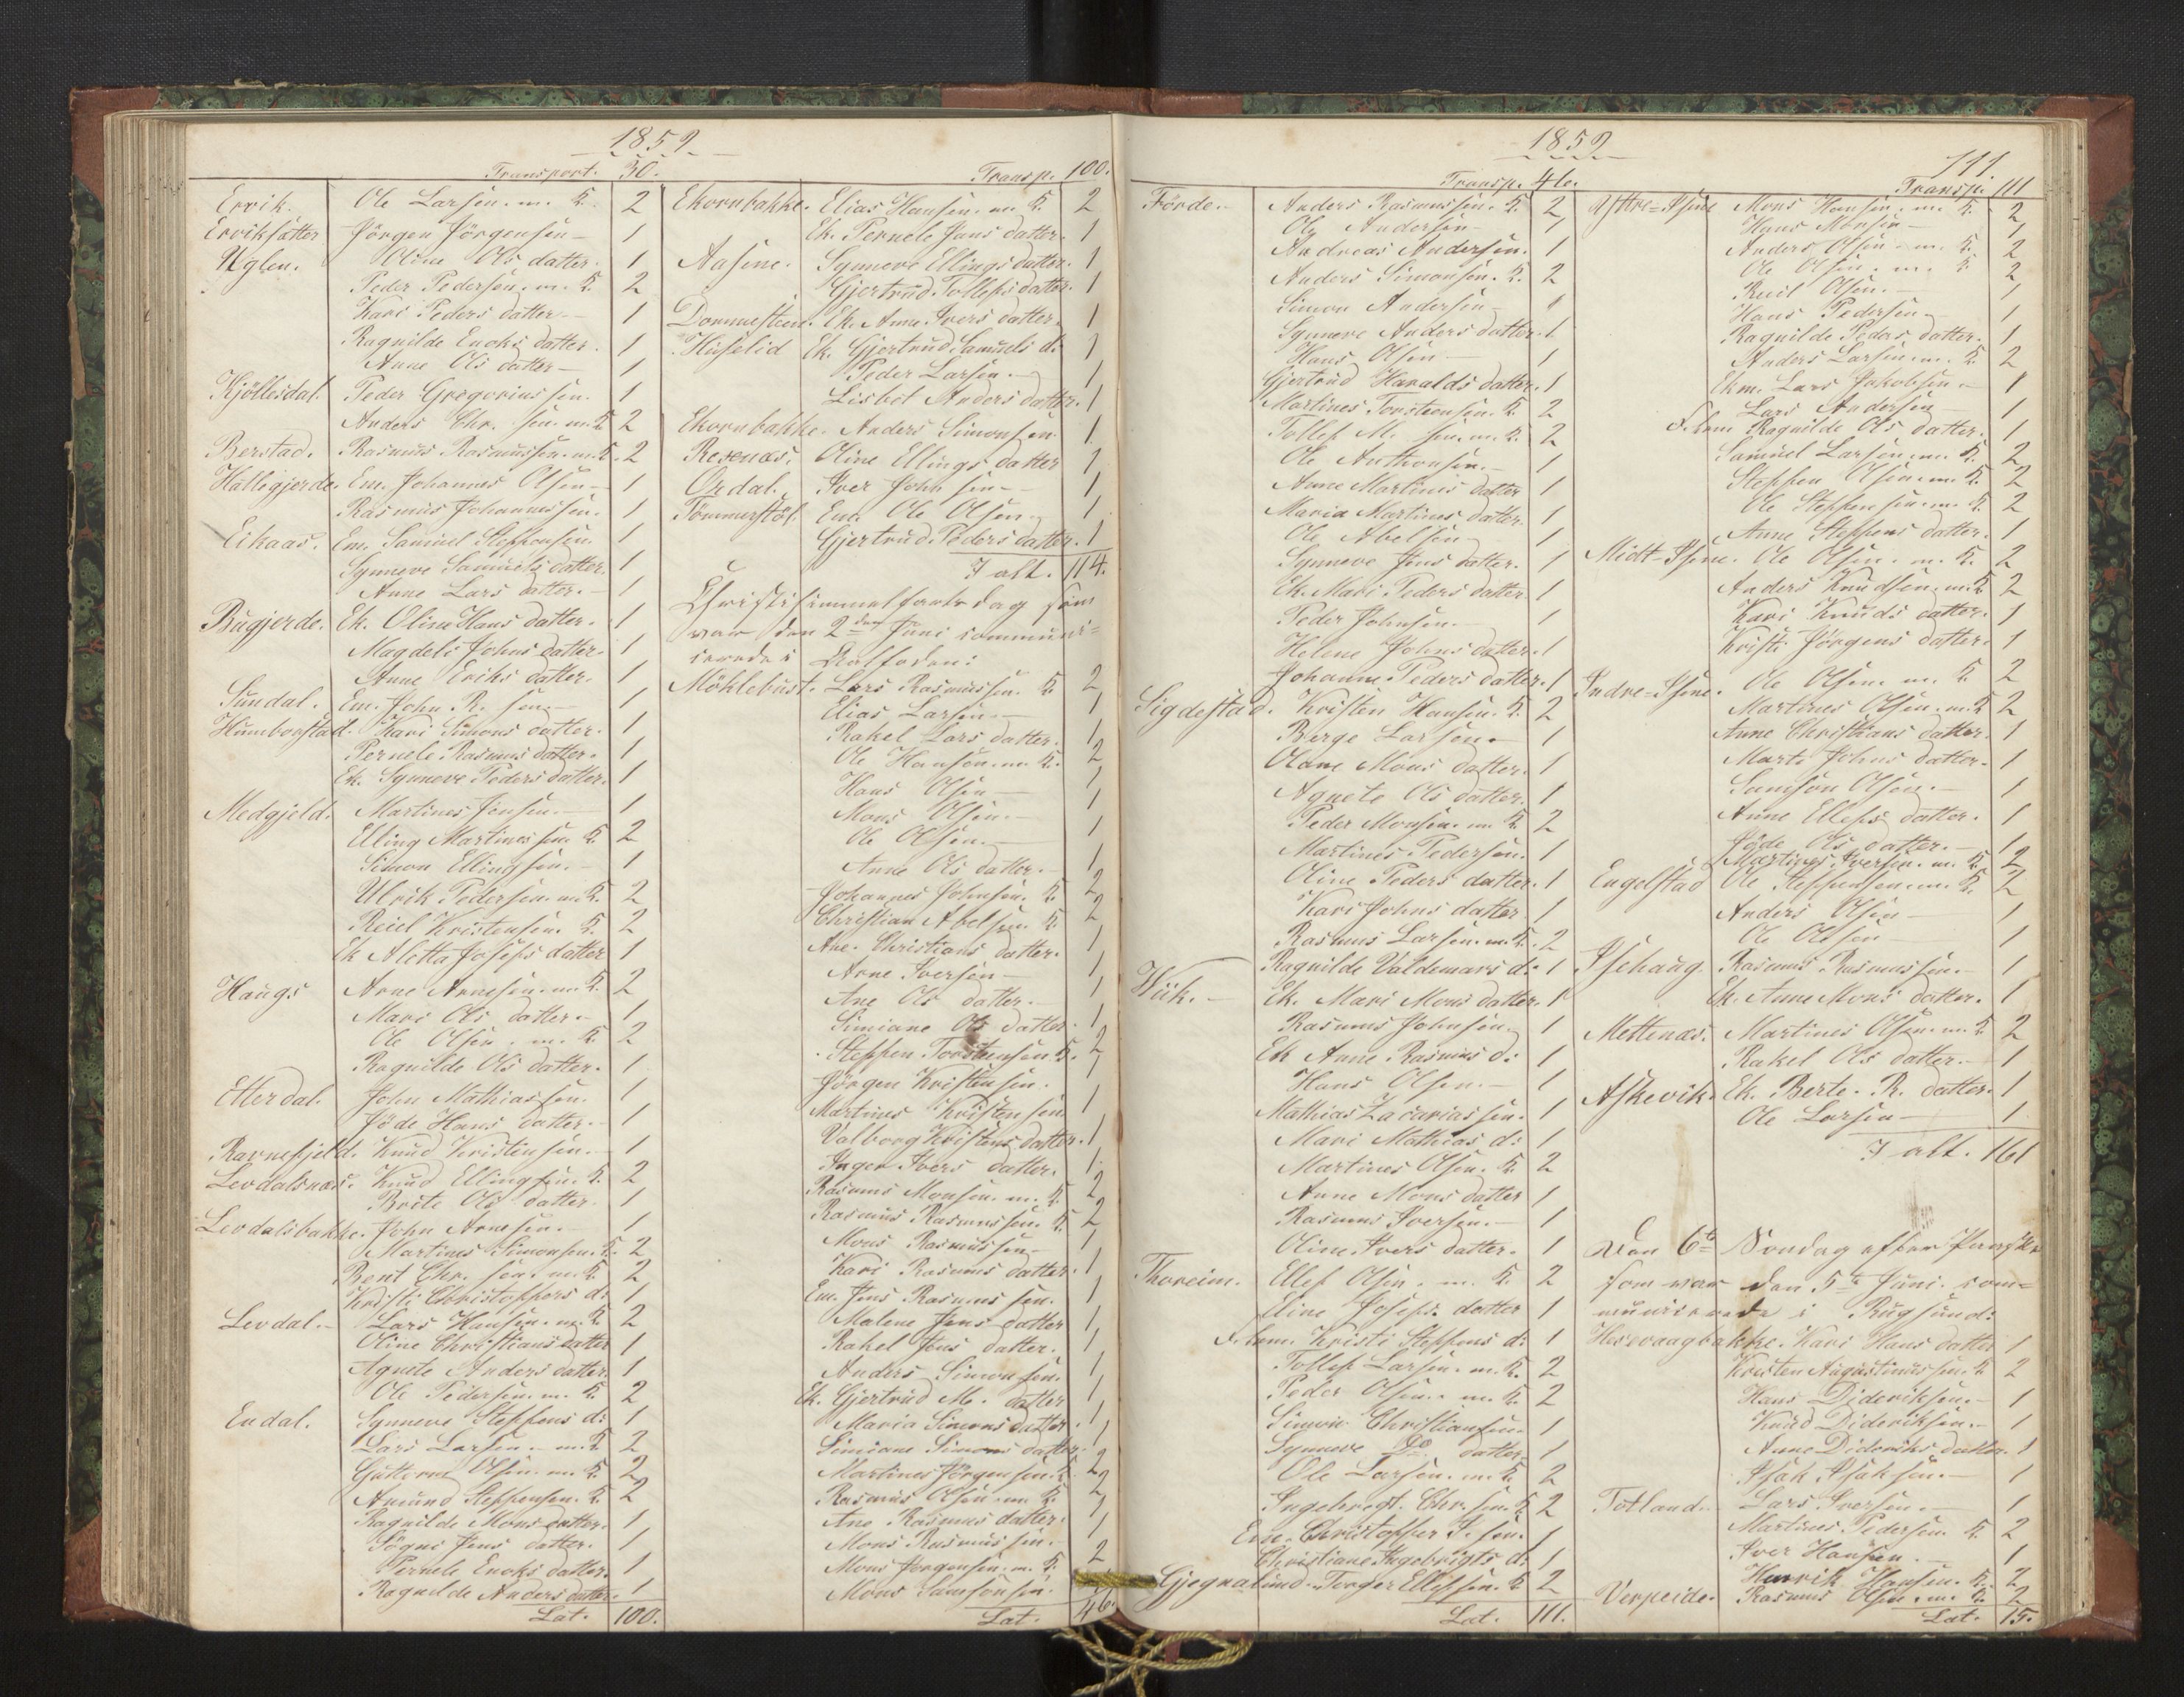 1859
Transport. 30.
Ervik. Ole Larsen. m. K. 2
Erviksätter Jörgen Jörgensen 1
Uglen. Oline Ols datter. 1
Peder Pedersen. m. K. 2
Kari Peders datter 1
Ragnilde Enoks datter. 1
Anne Ols datter 1
Kjöllesdal. Peder Gregoriussen. 1
Anders Chr. sen. m. K 2
Berstad. Rasmus Rasmussen. m. K. 2
Hallegjerde. Em. Johannes Olsen 1
Rasmus Johannessen. 1
Eikaas. Em. Samuel Steffensen. 1
Synneve Samuels datter. 1
Anne Lars datter. 1
Bugjerde. Ek. Oline Hans datter. 1
Magdeli Johns datter. 1
Anne Eriks datter. 1
Sundal. Em. John R. sen. 1
Humborstad. Kari Simons datter. 1
Pernele Rasmus datter. 1
Ek. Synneve Peders datter. 1
Medgjeld. Martines Jensen. 1
Elling Martinessen. K. 2
Simon Ellingsen. 1
Ulrik Pedersen. m. K. 2
Reiel Kristensen. K. 2
Ek Aletta Josefs datter 1
Haugs Arne Arnesen. m. K. 2
Mari Ols datter. 1
Ole Olsen. m. K 2
Ragnilde Ols datter. 1
Etterdal. John Mathiassen. 1
Jöde Hans datter. 1
Ravnefjeld. Knud Kristensen. 1
Levdalsnæs. Knud Ellingsen. K. 2
Brite Ols datter. 1
Levdalsbakke. John Arnesen. 1
Martines Simonsen. K. 2
Bent Chr. sen. m. K. 2
Kristi Christoffers d: 1
Levdal. Lars Hansen. m. K 2
Oline Christians datter 1
Agnete Anders datter. 1
Ole Pedersen. m. K. 2
Endal. Synneve Steffens d: 1
Lars Larsen. m. K 2
Guttorm Olsen. m. K. 2
Amund Steffensen. K. 2
Ragnilde Mons datter. 1
Sögni Jens datter. 1
Pernele Enoks datter. 1
Ragnilde Anders datter. 1
Lat. 100.
Transp. 100.
Ekornbakke. Elias Hansen. m. K. 2
Ek. Pernele Jans datter. 1
Aasene. Synneve Ellings datter. 1
Gjertrud Tollefs datter. 1
Dommesteen. Ek. Anne Ivers datter. 1
Huselid Ek. Gjertrud Samuels d: 1
Peder Larsen. 1
Lisbet Anders datter. 1
Ekornbakke. Anders Simonsen 1
Revenæs. Oline Ellings datter 1
Ordal. Iver Johnsen 1
Tömmerstöl. Em. Ole Olsen. 1
Gjertrud Peders datter. 1
I alt. 114.
Christihimmelfartsdag som
var den 2den Juni communi=
cerede i Kalfaden:
Möklebust. Lars Rasmussen. K. 2
Elias Larsen. 1
Rakel Lars datter. 1
Ole Hansen. m. K. 2
Hans Olsen 1
Mons Olsen. 1
Ole Olsen. 1
Anne Ols datter. 1
Johannes Johnsen. K. 2
Christian Abelsen. K 2
Ane Christians datter. 1
Arne Iversen 1
Ane Ols datter. 1
Simiane Ols datter. 1
Steffen Torstensen. K. 2
Jörgen Kristensen. 1
Martines Kristensen 1
Valborg Kristens datter. 1
Inger Ivers datter. 1
Rasmus Monsen. m. K. 2
Rasmus Rasmussen. K. 2
Mons Rasmussen 1
Kari Rasmus datter. 1
Em. Jens Rasmussen. 1
Malene Jens datter 1
Rakel Jens datter. 1
Anders Simonsen. 1
Ek. Gjertrud M. datter 1
Maria Simons datter. 1
Simiane Simons datter. 1
Martines Jörgensen. K. 2
Rasmus Olsen. m. K. 2
Ane Rasmus datter. 1
Mons Rasmussen. 1
Mons Jörgensen. m. K. 2
Mons Samsonsen.
Lat. 46.
1859
111.
Transp. 46.
Förde. Anders Rasmussen. K. 2
Ole Andersen 1
Andreas Andersen. 1
Anders Simonsen. K. 2
Simon Andersen 1
Synneve Anders datter. 1
Hans Olsen 1
Gjertrud Haralds datter. 1
Martines Torstensen. K. 2
Tollef M. sen. m. K. 2
Ole Anthonsen. 1
Anne Martines datter 1
Maria Martines datter. 1
Ole Abelsen 1
Synneve Jens datter. 1
Ek. Mari Peders datter. 1
Peder Johnsen. 1
Helene Johns datter. 1
Johanne Peders datter. 1
Sigdestad. Kristen Hansen. K. 2
Börge Larsen. 1
Oline Mons datter. 1
Agnete Ols datter. 1
Peder Monsen. m. K. 2
Martines Pedersen. 1
Oline Peders datter. 1
Kari Johns datter 1
Rasmus Larsen. m. K. 2
Ragnilde Valdemars d: 1
Wiik. Ek. Mari Mons datter. 1
Rasmus Johnsen. 1
Ek Anne Rasmus d: 1
Hans Olsen. 1
Mathias Zacariassen. 1
Mari Mathias d: 1
Martines Olsen. K. 2
Anne Mons datter 1
Rasmus Iversen. 1
Oline Ivers datter. 1
Thoreim. Ellef Olsen. m. K. 2
Eline Josefs datter 1
Kristi Steffens d: 1
Tollef Larsen. m. K. 2
Peder Olsen. m. K. 2
Simon Christiansen 1
Synneve Do datter 1
Ole Larsen. m. K. 2
Ingebregt. Chr. sen. K 2
Em. Christopher I. sen. 1
Christiane Ingebrigts d: 1
Gjegnalund. Torger Ellefsen. K 2
Lat. 111.
Transp. 111
Yttre=Isene Mons Hansen. m. K. 2
Hans Monsen 1
Anders Olsen. m. K. 2
Ole Olsen. m. K 2
Reiel Olsen. 1
Hans Pedersen. 1
Ragnilde Peders datter. 1
Anders Larsen. m. K. 2
Ekm. Lars Jakobsen. 1
Lars Andersen 1
Ragnilde Ols datter. 1
Samuel Larsen. m. K. 2
Steffen Olsen. m. K. 2
Ole Steffensen. m. K 2
Anne Steffens datter. 1
Midt=Isene. Ole Olsen. m. K. 2
Anders Knudsen. m. K 2
Kari Knuds datter. 1
Kristi Jörgens datter. 1
Indre=Isene. Ole Olsen. m. K 2
Martines Olsen. m. K 2
Anne Christians datter. 1
Marte Johns datter. 1
Samson Olsen. 1
Anne Ellefs datter. 1
Jöde Ols datter. 1
Martines Iversen. m. K. 2
Engelstad Ole Steffensen. m. K. 2
Anders Olsen 1
Ole Olsen 1
Isehaug. Rasmus Rasmussen. 1
Ek. Anne Mons datter. 1
Mettenæs. Martines Olsen. m. K. 2
Rakel Ols datter. 1
Askevik. Ek. Berte. R. datter. 1
Ole Larsen 1
I alt. 161
Den 6te Söndag efter Paaske
som var den 5te Juni. com=
municerede i Rugsund:
Hessevaagbakke. Kari Hans datter 1
Kristen Augustinussen. K 2
Hans Dideriksen. 1
Knud Dideriksen. 1
Anne Dideriks datter. 1
Isak Isaksen. 1
Totland. Lars Iversen. 1
Martines Pedersen. K 2
Iver Hansen. 1
Henrik Hansen. K. 2
Verpeide. Rasmus Olsen. m. K. 2
Lat. 15.